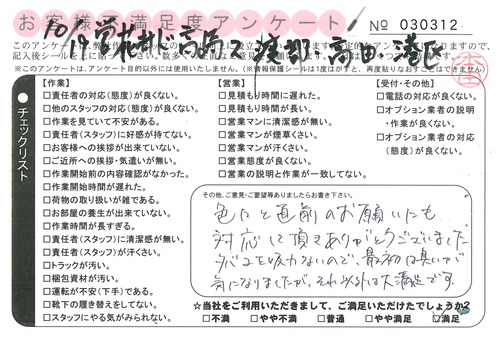 お客様満足度アンケート
№ 030312
10/19
高田・港区
※このアンケートは、アンケート目的以外には使用いたしません。(※情報保護シールは1度はがすと、再度貼りなおすことはできません)
チェックリスト
【作業】
□責任者の対応(態度)が良くない。
□他のスタッフの対応(態度)が良くない。
□作業を見ていて不安がある。
□責任者(スタッフ)に好感が持てない。
□お客様への挨拶が出来ていない。
□ご近所への挨拶・気遣いが無い。
□作業開始前の内容確認がなかった。
□作業開始時間が遅れた。
□荷物の取り扱いが雑である。
□お部屋の養生が出来ていない。
□作業時間が長すぎる。
□責任者(スタッフ)に清潔感が無い。
□責任者(スタッフ)が汗くさい。
□トラックが汚い。
□梱包資材が汚い。
□運転が不安(下手)である。
□靴下の履き替えをしてない。
□スタッフにやる気がみられない。
【営業】
□見積もり時間に遅れた。
□見積もり時間が長い。
□営業マンに清潔感が無い。
□営業マンが煙草くさい。
□営業マンが汗くさい。
□営業態度が良くない。
□営業の説明と作業が一致してない。
【受付・その他】
□電話の対応が良くない。
□オプション業者の説明
・作業が良くない。
□オプション業者の対応
(態度)が良くない。
その他、ご意見・ご要望等ありましたらお書き下さい。
色々と直前のお願いにも
対応して頂きありがとうございました
タバコを吸わないので、最初は臭いで
気になりましたが、それ以外は大満足です。
☆当社をご利用いただきまして、ご満足いただけたでしょうか?
□不満 □やや不満 □普通 □やや満足 ☑満足